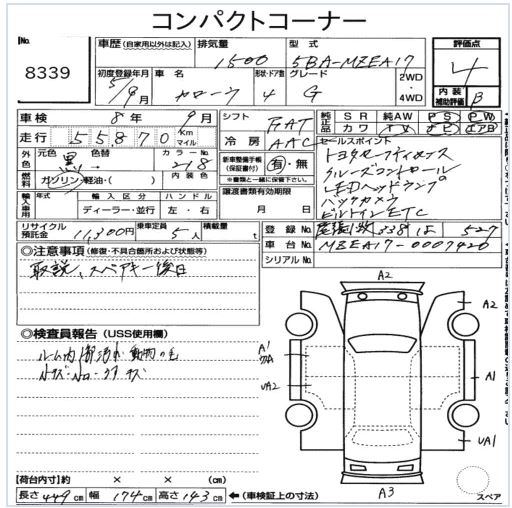 コンパクトコーナー
No.
8339
車歴 (自家用以外は記入)
排気量
1500
型式
5BA-MZEA17
評価点
4
初度登録年月
5/9月
車名
カローラ
形状・ドア数
4
グレード
G
2WD
・
4WD
内装
補助評価
B
車検 8年 9月
走行 55870 Km マイル
シフト
FAT
冷房
AAC
純正品
SR 純AW PS PW
カワ ナビ エアB
外装色
元色 黒
色替
カラーNo.
218
燃料
ガソリン・軽油・( )
内装色
新車整備手帳
(保証書付)
有・無
※書類と一緒に保管して下さい。
セールスポイント
トヨタセーフティセンス
クルーズコントロール
LEDヘッドランプ
バックカメラ
ビルトインETC
輸入車用
年式
輸入区分
ディーラー・並行
ハンドル
左・右
譲渡書類有効期限
月 日
リサイクル預託金
11,300円
乗車定員
5人
積載量
t
登録No.
尾張小牧 338 527
車台No.
MZEA17-0007420
シリアルNo.
◎注意事項 (修復・不具合箇所および状態等)
取説、スペアキー後日
◎検査員報告 (USS使用欄)
ルーム内 動物の毛
A2
A2
A1
UA2
A1
UA1
A3
スペア
【荷台内寸】約 × × (cm)
長さ 449cm 幅 174cm 高さ 143cm ←(車検証上の寸法)